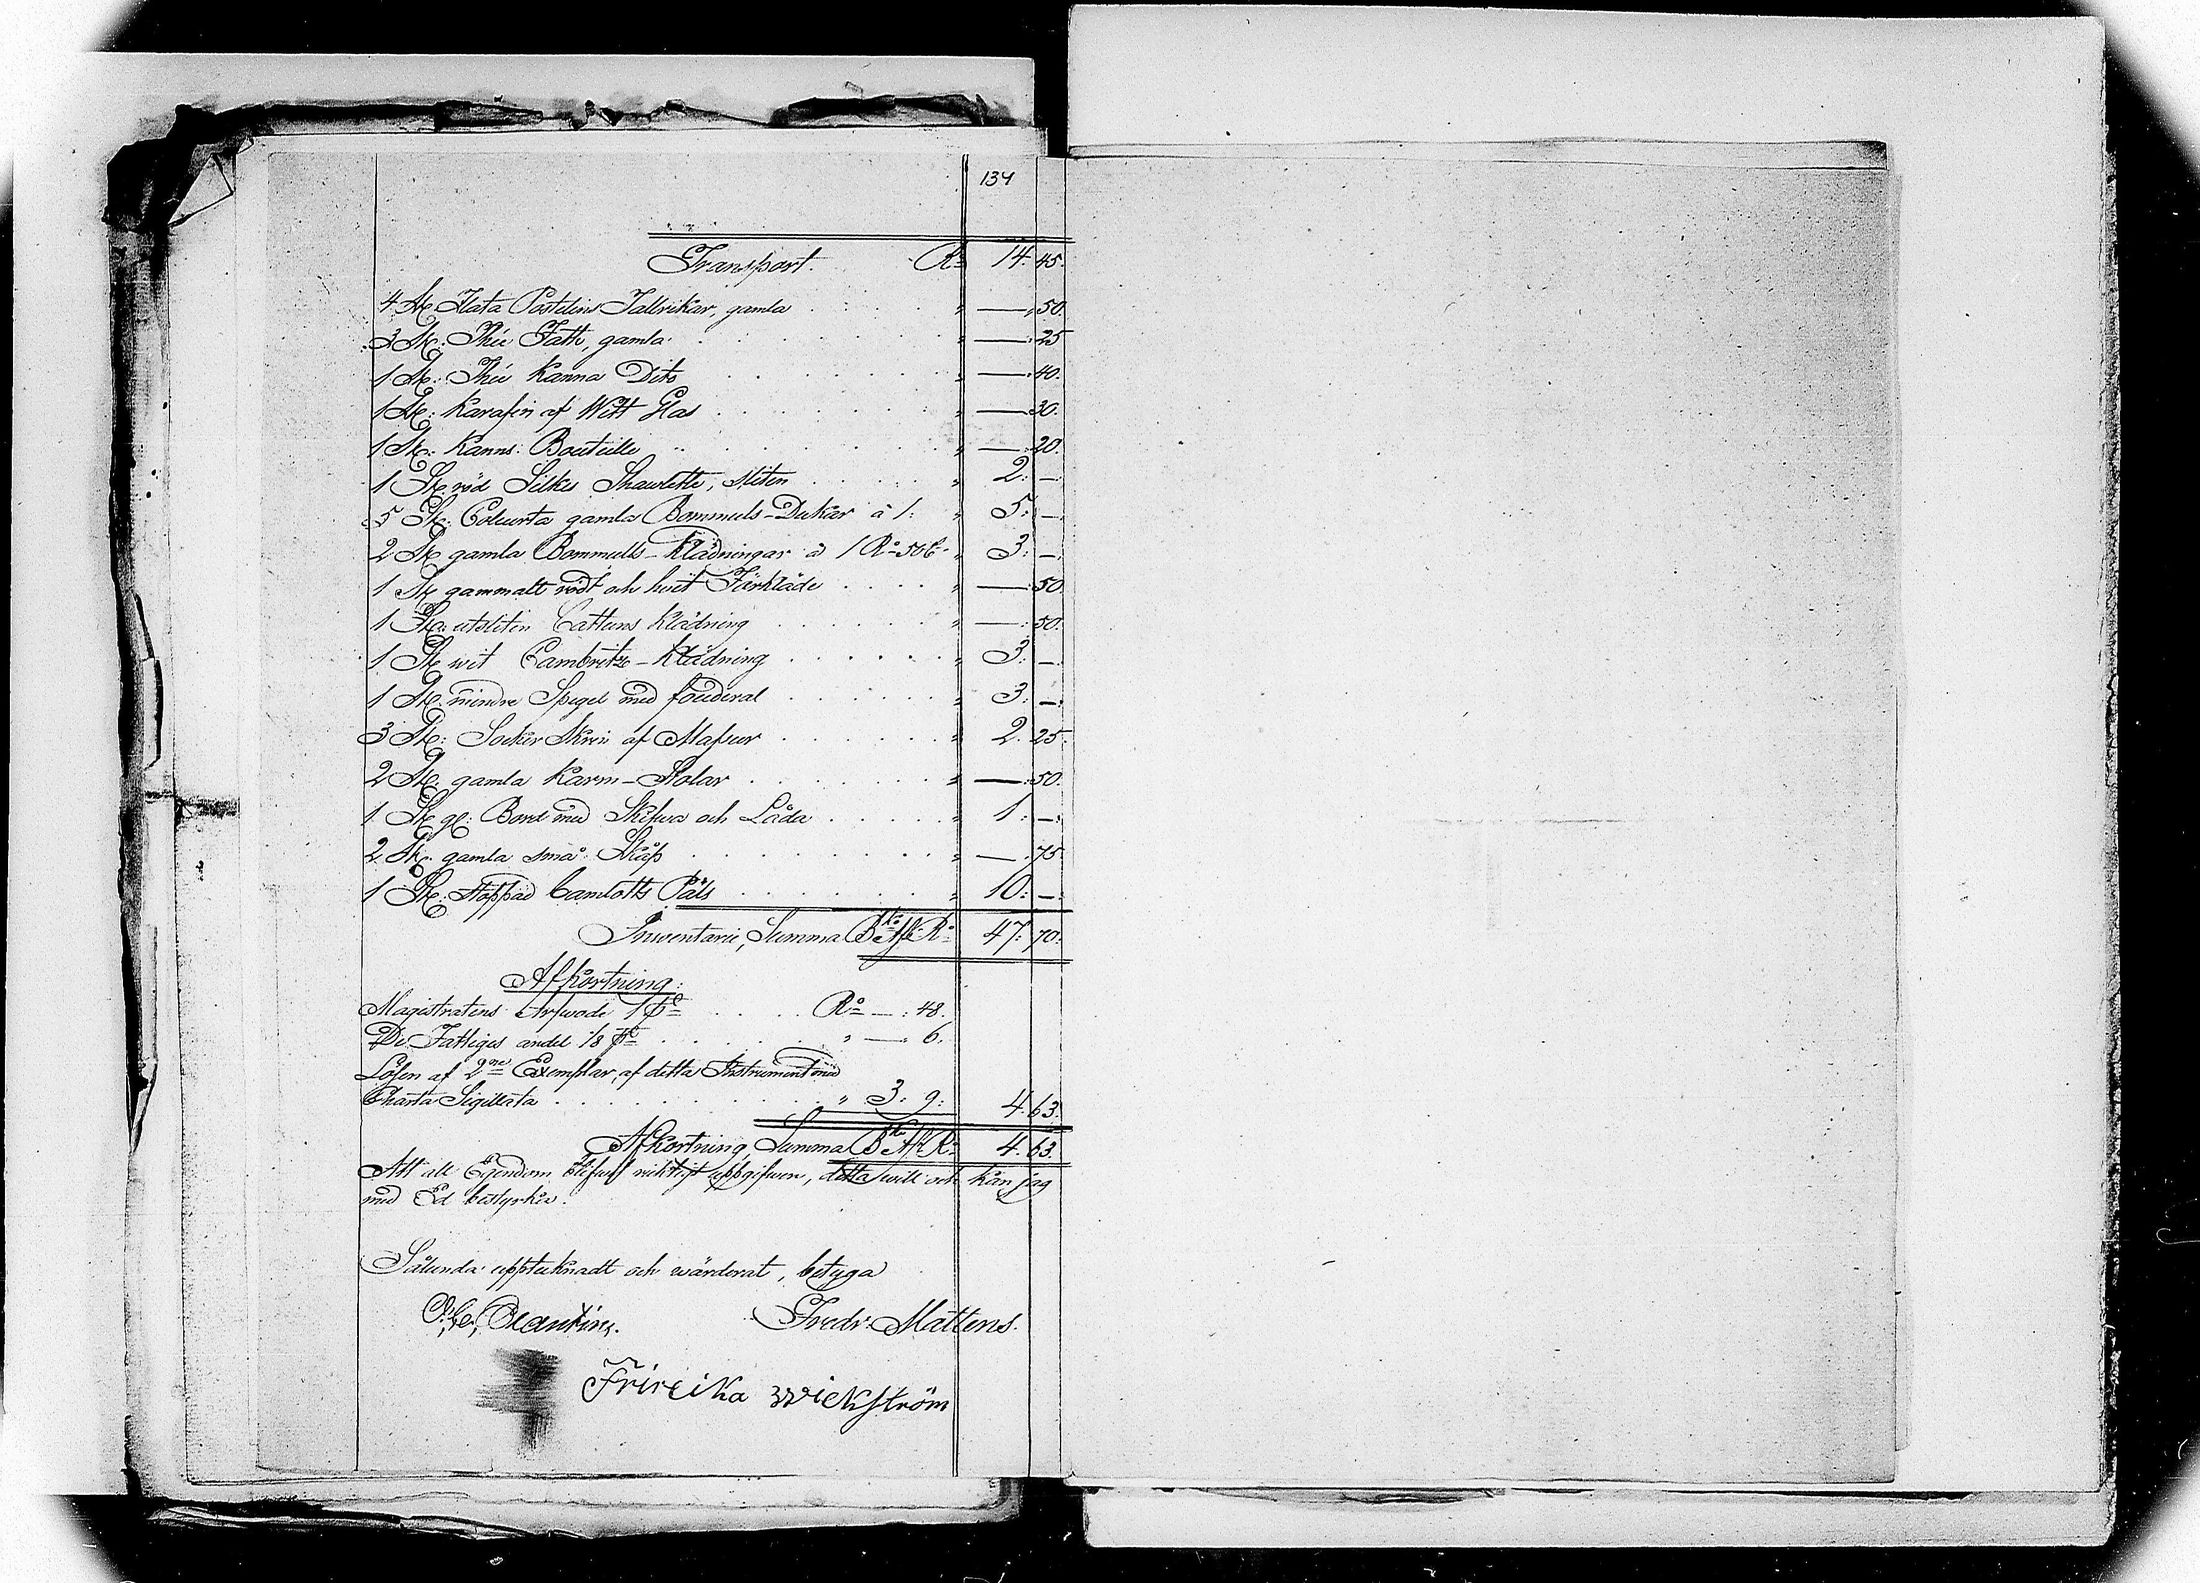 134
Transport. Ro 14. 45.
4 St. Flata Postelins Tallrikar, gamla " — 50.
3 St: Thée Fath, gamla " — 25
1 St: Thée Kanna Dito " — 40.
1 St: Karafin af Witt Glas " — 30.
1 St: Kanns: Bouteille " — 20.
1 St: röd Silkes Shawlette, sliten " 2. —.
5 St: Coleurta gamla Bommuls-Dukar à 1: " 5: —.
2 St gamla Bommulls-Klädningar à 1 Ro 50 C " 3. —.
1 St gammalt rödt och hvit Förkläde " — 50
1 St: utsliten Cattuns Klädning " — 50.
1 St wit Cambritz-Klädning " 3. —.
1 St. mindre Spegel med fouderal " 3. —.
3 St: Socker Skrin af Masur " 2. 25.
2 St. gamla Karm-Stolar " — 50.
1 St gl: Bord med Skifwa och Låda " 1: —.
2 St. gamla små Skåp " — 75
1 St: stoppad Camlotts Päls " 10: —.
Inventarie, Summa Bko Ass Ro 47: 70.
Afkortning:
Magistratens Arfwode 1 pCt Ro — : 48.
De Fattiges andel 1/8 pCt " — 6.
Lösen af 2ne Exemplar, af detta Instrument med
Charta Sigillata " 3: 9: 4. 63.
Afkortning, Summa Bko Ass Ro 4. 63.
Att all Egendom blifwit riktigt uppgifwen, detta will och kan jag
med Ed bestyrka.
Sålunda upptecknadt och wärderat, betyga
Fredr: Mattens.
Fririika wickström